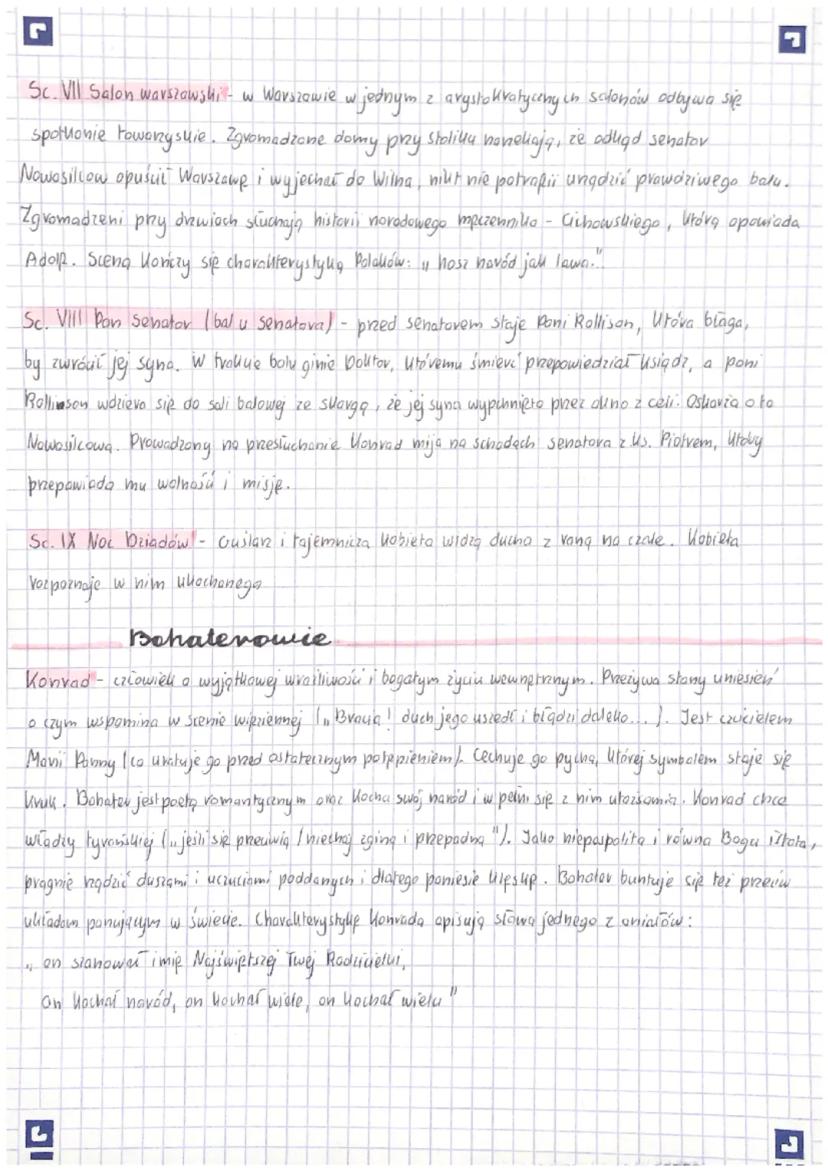 Sc. VII Salon warszawski - w Warszawie w jednym z arystokratycznych salonów odbywa się
spotkanie towarzyskie. Zgromadzone damy przy stoliku narzekają, że odkąd senator
Nowosilcow opuścił Warszawę i wyjechał do Wilna, nikt nie potrafii urządzić prawdziwego balu.
Zgromadzeni przy drzwiach słuchają historii narodowego męczennika - Cichowskiego, którą opowiada
Adolf. Scenę kończy się charakterystyką Polaków: „ nasz naród jak lawa."
Sc. VIII Pan Senator (bal u senatora) - przed senatorem staje Pani Rollison, która błaga,
by zwrócił jej syna. W trakcie balu ginie Doktor, któremu śmierć przepowiedział ksiądz, a pani
Rollinson wdziera się do sali balowej ze skargą, że jej syna wypchnięto przez okno z celi. Oskarża o to
Nowosilcowa. Prowadzony na przesłuchanie Konrad mija na schodach senatora z ks. Piotrem, który
przepowiada mu wolność i misję.
Sc. IX Noc Dziadów - Guślarz i tajemnicza kobieta widzą ducha z raną na czole. Kobieta
rozpoznaje w nim ukochanego
Bohaterowie
Konrad - człowiek o wyjątkowej wrażliwości i bogatym życiu wewnętrznym. Przeżywa stany uniesień
o czym wspomina w scenie więziennej („ Bracia! duch jego uszedł i błądzi daleko... ). Jest czcicielem
Marii Panny (co uratuje go przed ostatecznym potępieniem). Cechuje go pycha, której symbolem staje się
kruk. Bohater jest poetą romantycznym oraz kocha swój naród i w pełni się z nim utożsamia. Konrad chce
władzy tyrańskiej („ jeśli się przeciwią / niechaj zginą i przepadną "). Jako niepospolita i równa Bogu istota,
pragnie rządzić duszami i uczuciami poddanych i dlatego poniesie klęskę. Bohater buntuje się też przeciw
układom panującym w świecie. Charakterystykę Konrada opisują słowa jednego z aniołów:
„ on szanował imię Najświętszej Twej Rodzicielki,
on kochał naród, on kochał wiele, on kochał wielu "